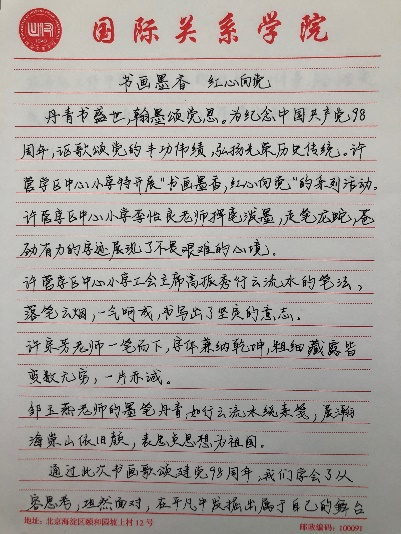 国际关系学院
书画墨香 红心向党
丹青书盛世,翰墨颂党恩。为纪念中国共产党98
周年,讴歌颂党的丰功伟绩,弘扬光荣历史传统。许
营学区中心小学特开展“书画墨香,红心向党”的系列活动。
许营学区中心小学李怀良老师挥毫泼墨,走笔龙蛇,苍
劲有力的字迹展现了不畏艰难的心境。
许营学区中心小学工会主席高振秀行云流水的笔法,
落笔云烟,一气呵成,书写出了坚定的意志。
许荣芳老师一笔而下,字体兼纳乾坤,粗细藏露皆
变数无穷,一片赤诚。
邹玉燕老师的墨笔丹青,如行云流水绕素笺,展瀚
海崇山依旧颜,表忠贞思想为祖国。
通过此次书画歌颂建党98周年,我们学会了从
容思考,坦然面对,在平凡中发掘出属于自己的舞台
地址:北京海淀区颐和园坡上村12号 邮政编码:100091